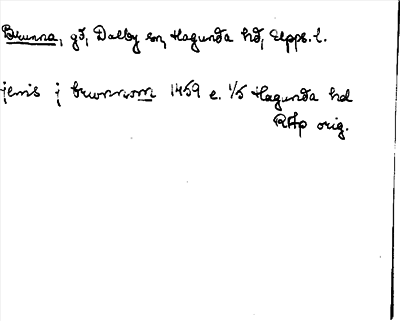 Brunna, gd, Dalby sn, Hagunda hd, Upps. l.
jenis j brwnnom 1459 e. 1/5 Hagunda hd
RAp orig.